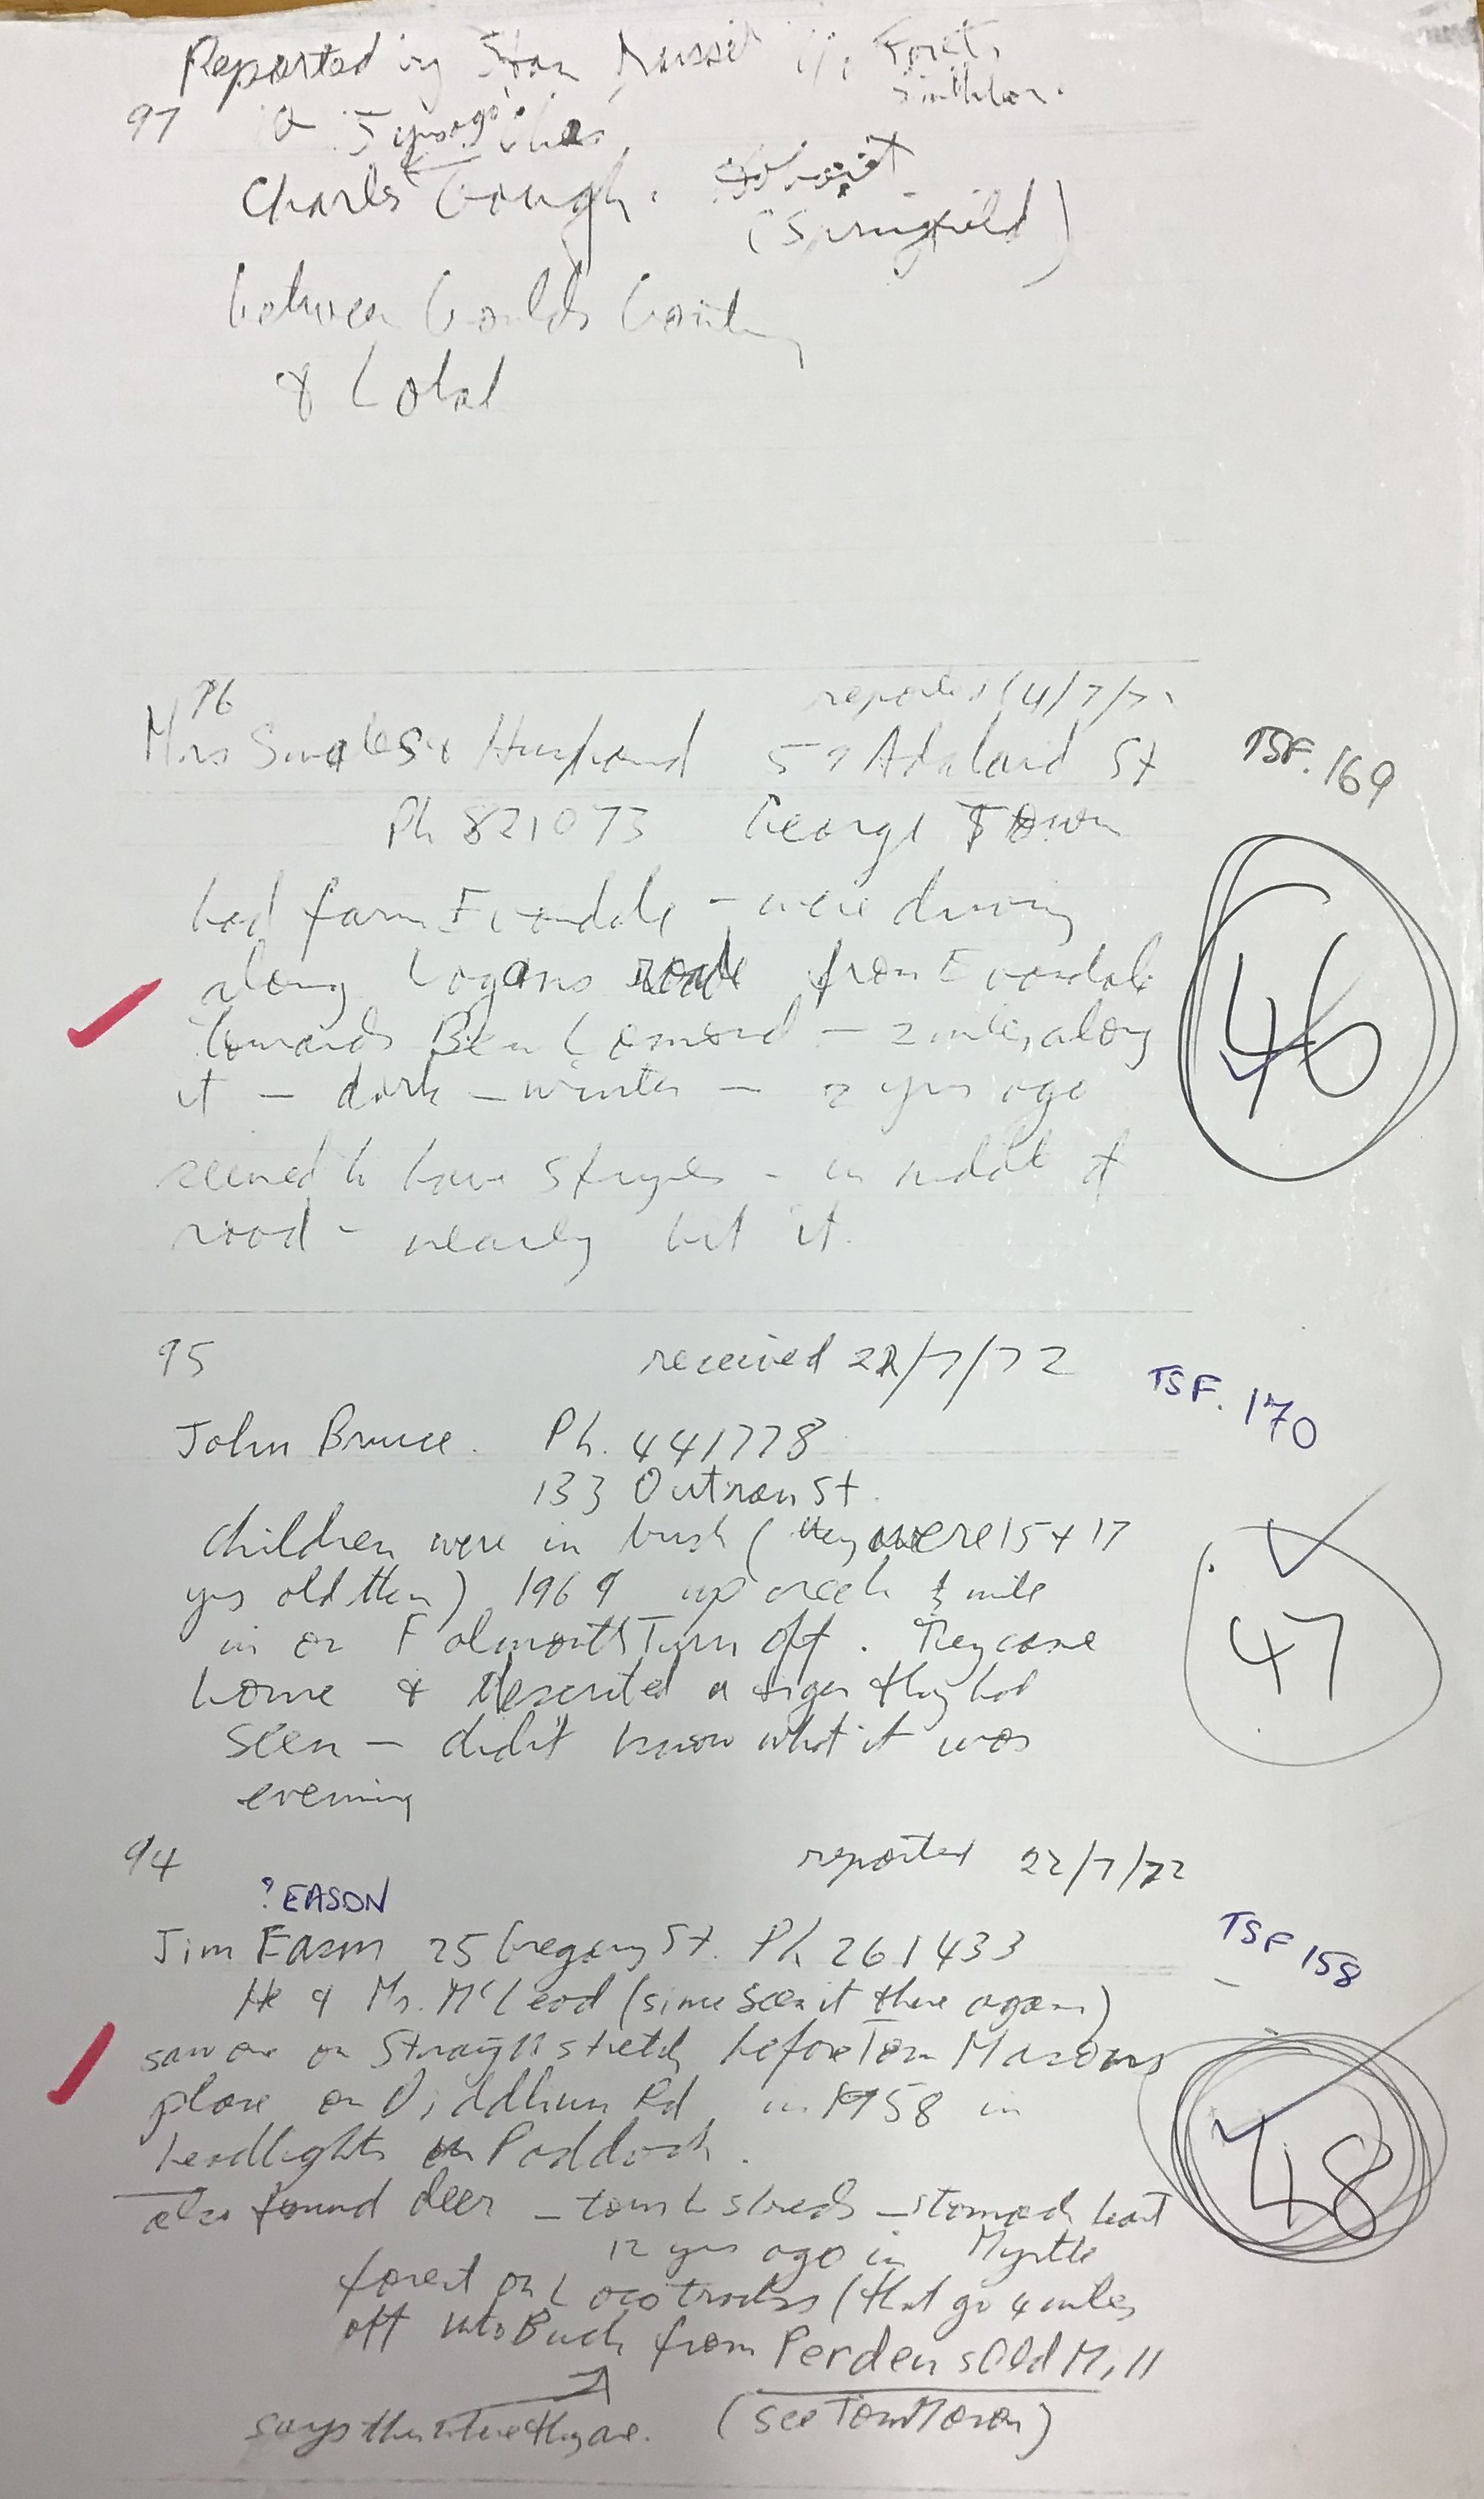 Reported by Stan
97
5 yrs ago
Charles Gough. (Springfield)
between Goulds Country
& Lotal
96 reported 14/7/72
Mrs & Husband 59 Adalaid St
TSF. 169
Ph 821073 George Town
had farm Evandale - were driving
along Logans road from Evandale
towards Ben Lomond - 2 miles along
46
it - dark - winter - 2 yrs ago
seemed to have stripes - in middle of
road - nearly hit it.
95 received 22/7/72
TSF. 170
John Bruce. Ph. 441778
133 Outram St.
children were in bush (they were 15 & 17
yrs old then) 1969 up creek ½ mile
in on Falmouth Turn off. They came
47
home & described a tiger they had
seen - didn't know what it was
evening
94 reported 22/7/72
? EASON
Jim Eason 25 Gregory St. Ph 261433
TSF 158
He & Mr. McLeod (since seen it there again)
saw one on straight stretch before Tom Masons
place on Diddleum Rd in 1958 in
headlights in Paddock.
48
also found deer - torn to shreds - stomach heart
12 yrs ago in Myrtle
forest on Loco tracks (that go 4 miles
off into Bush from Perdens Old Mill
says there are.
(see Tom Mason)